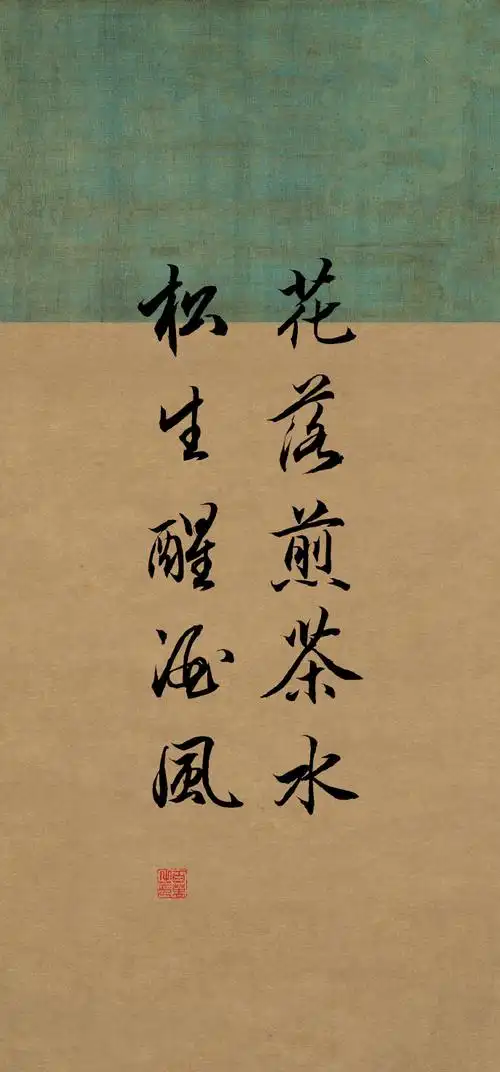 花落煎茶水
松生醒酒風